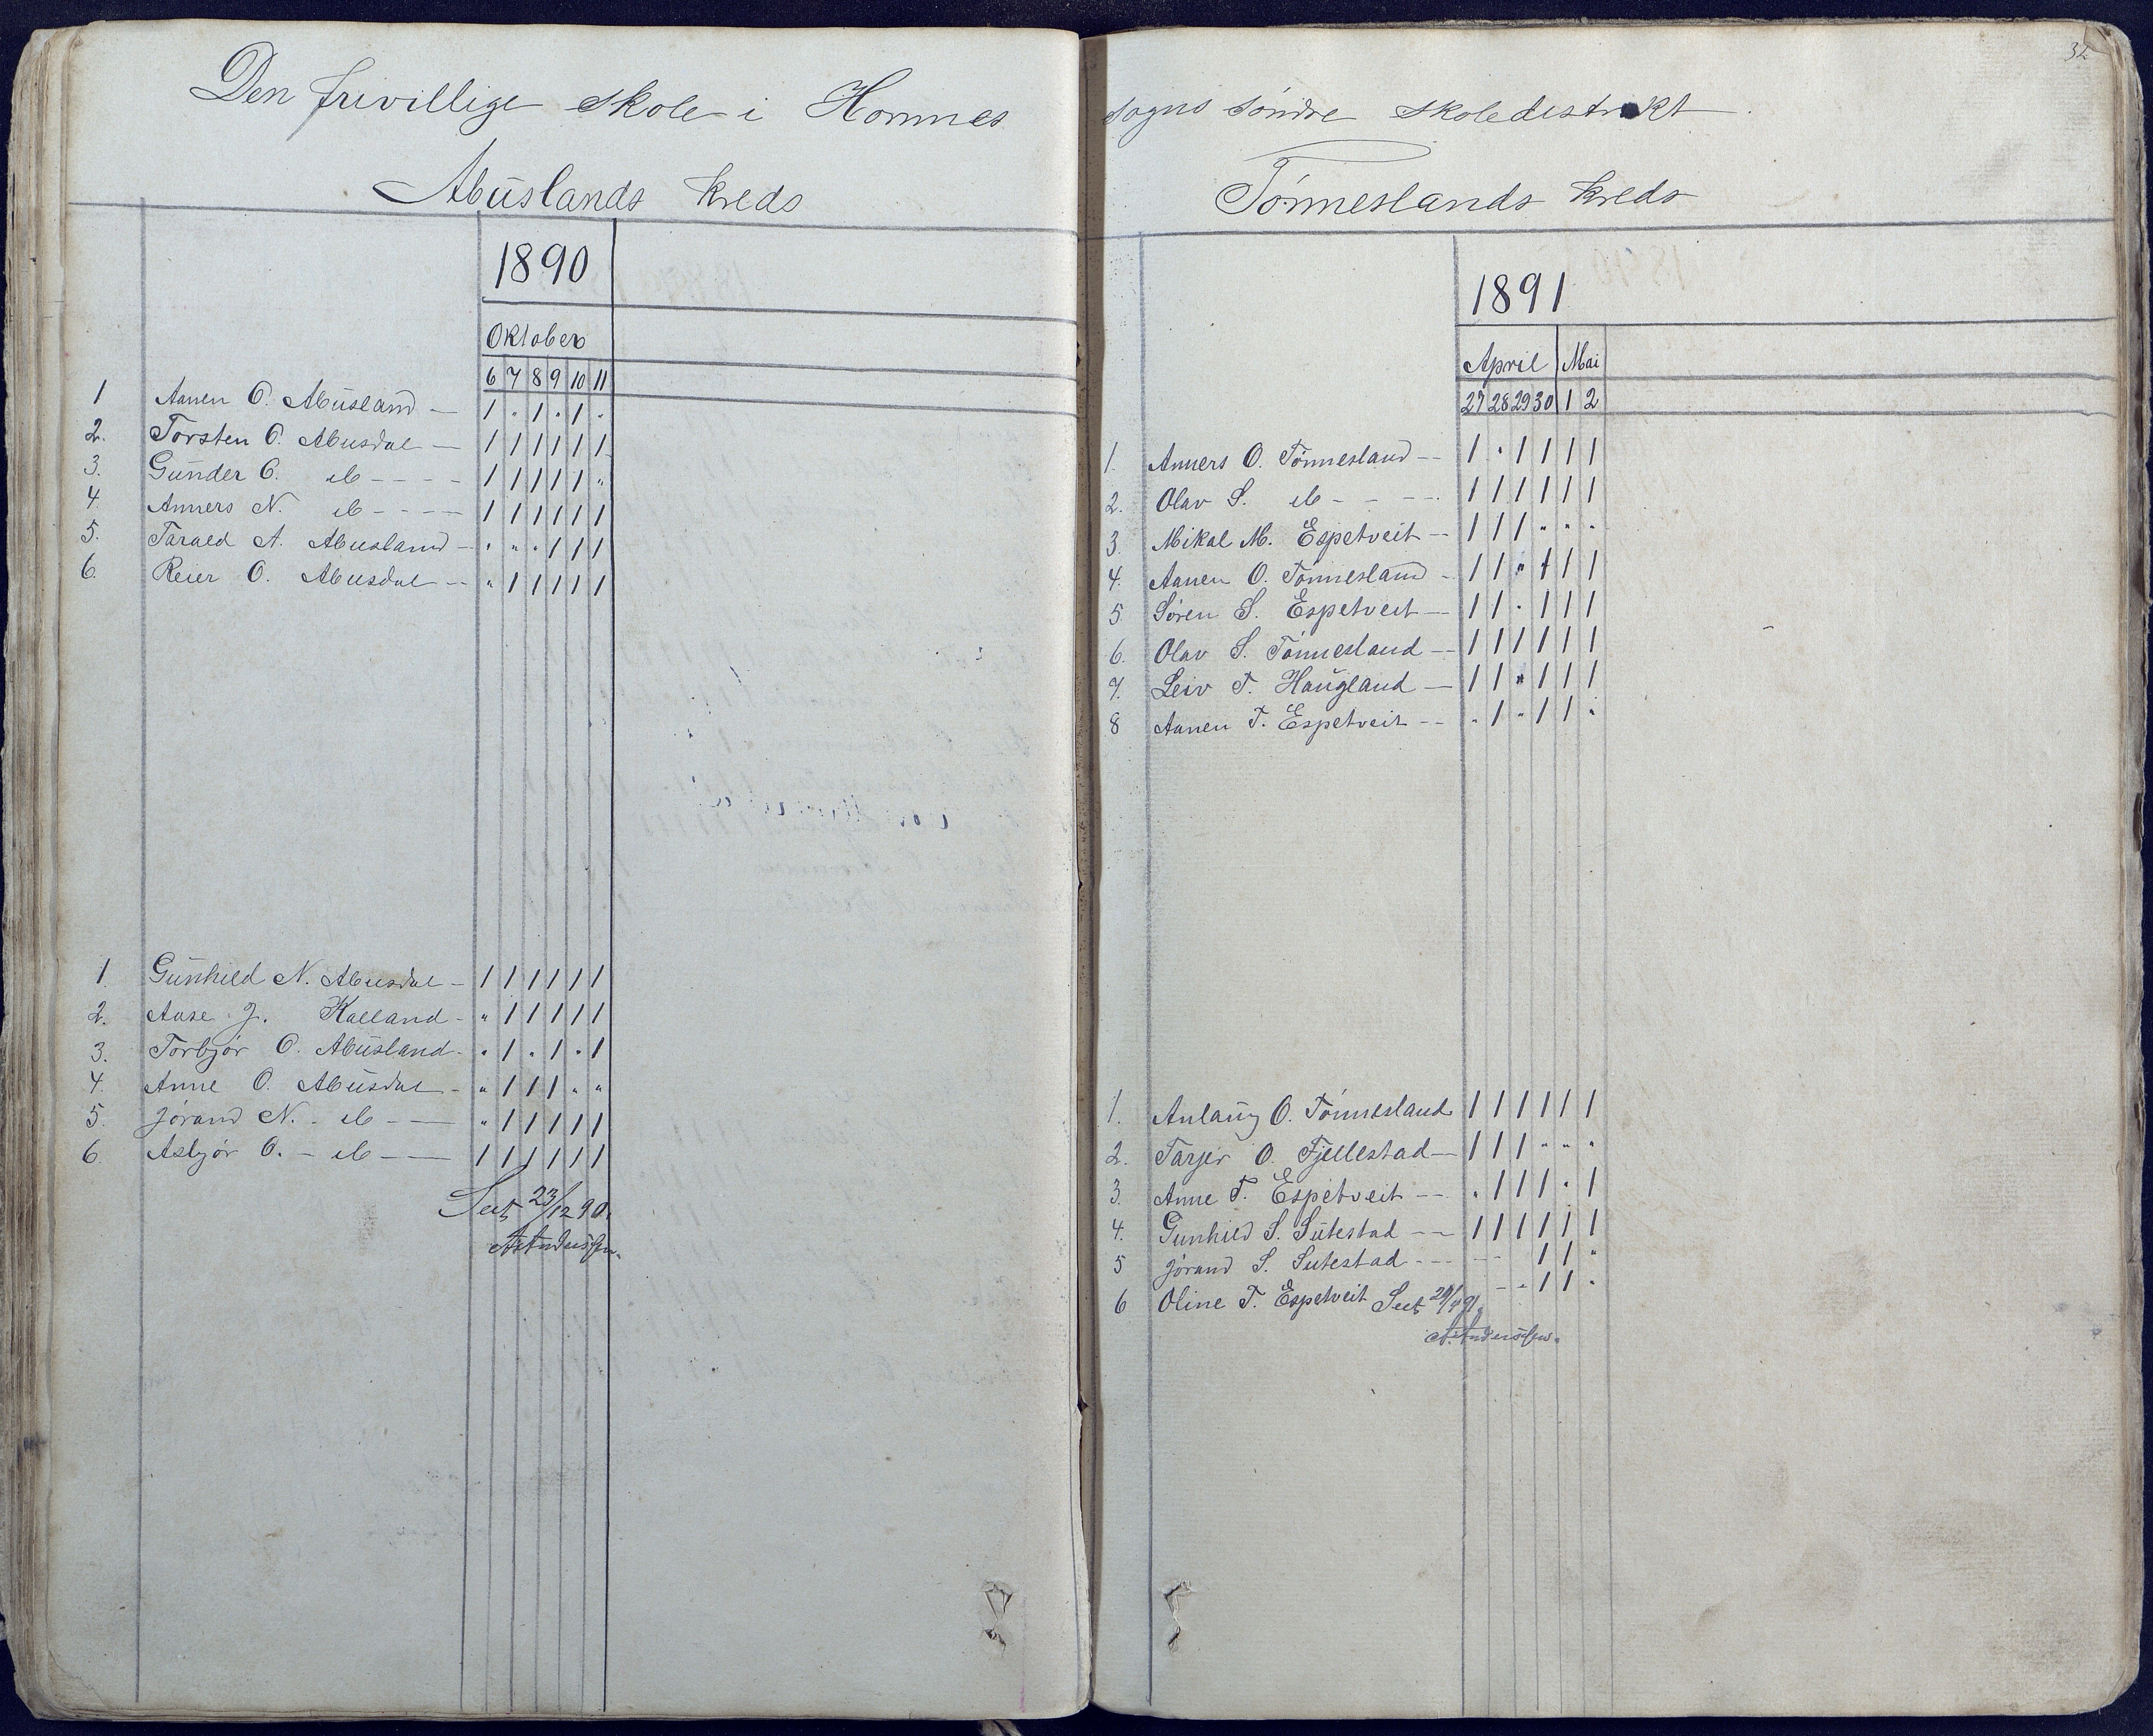 Den frivillige skole i Hornnes
Abuslands kreds
1890
Oktober
6 7 8 9 10 11
1 Aanen O. Abusland — 1 " 1 " 1 "
2. Torsten O. Abusdal — 1 1 1 1 1 1
3. Gunder O. do - - - - 1 1 1 1 1 "
4. Anners N. do - - - - 1 1 1 1 1 1
5. Tarald A. Abusland - " " " 1 1 1
6. Reier O. Abusdal -- " 1 1 1 1 1
1. Gunhild N. Abusdal - 1 1 1 1 1 1
2. Aase J. Kalland - " 1 1 1 1 1
3. Torbjør O. Abusland - " 1 " 1 " 1
4. Anne O. Abusdal - " 1 1 1 " "
5. Jørand N. - do - — " 1 1 1 1 1
6. Asbjør O. - do - — 1 1 1 1 1 1
Seet 23/12 90.
A. Anderssen.
32
sogns søndre skoledistrikt.
Tønneslands kreds
1891
April Mai
27 28 29 30 1 2
1. Anners O. Tønnesland -- 1 " 1 1 1 1
2. Olav S. do - - - - 1 1 1 1 1 1
3. Mikal M. Espetveit -- 1 1 1 " " "
4. Aanen O. Tønnesland - 1 1 " 1 1 1
5. Søren S. Espetveit — 1 1 " 1 1 1
6. Olav S. Tønnesland -- 1 1 1 1 1 1
7. Leiv T. Haugland — 1 1 " 1 1 1
8 Aanen T. Espetveit -- " 1 " 1 1 "
1. Anlaug O. Tønnesland 1 1 1 1 1 1
2. Tarjer O. Fjellestad — 1 1 1 " " "
3. Anne T. Espetveit -- " 1 1 1 " 1
4. Gunhild S. Sutestad -- 1 1 1 1 1 1
5 Jørand S. Sutestad - - - - - 1 1 "
6 Oline T. Espetveit - - " 1 1 "
Seet
A. Anderssen.